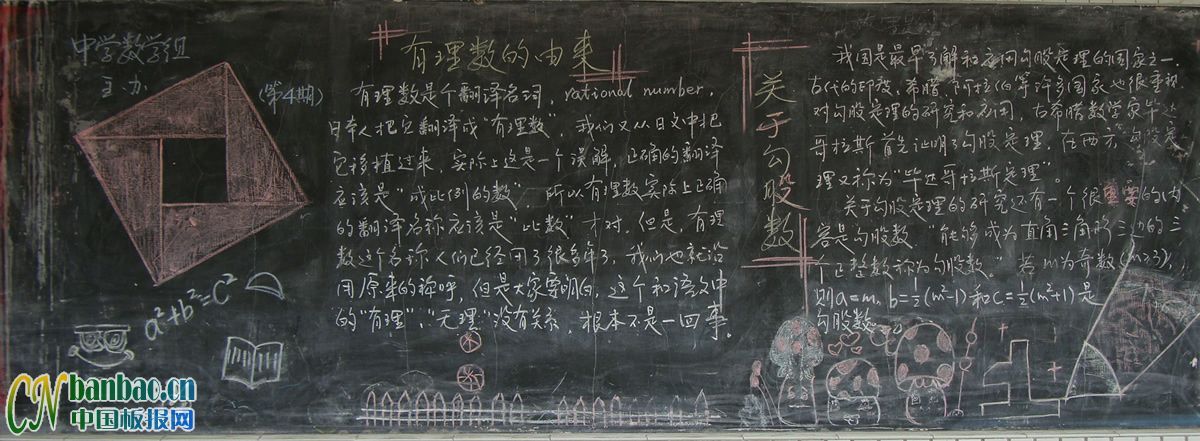 中学数学组
主办
(第4期)
a²+b²=c²
有理数的由来
有理数是个翻译名词，rational number，
日本人把它翻译成“有理数”，我们又从日文中把
它移植过来，实际上这是一个误解，正确的翻译
应该是“成比例的数”，所以有理数实际上正确
的翻译名称应该是“比数”才对，但是，有理
数这个名称人们已经用了很多年了，我们也就沿
用原来的称呼，但是大家要明白，这个和语文中
的“有理”、“无理”没有关系，根本不是一回事。
关于勾股数
我国是最早了解和应用勾股定理的国家之一，
古代的印度、希腊、阿拉伯等许多国家也很重视
对勾股定理的研究和应用，古希腊数学家毕达
哥拉斯首先证明了勾股定理，在西方，勾股定
理又称为“毕达哥拉斯定理”。
关于勾股定理的研究还有一个很重要的内
容是勾股数，“能够成为直角三角形三边的三
个正整数称为勾股数。”若m为奇数(m≥3)，
则a=m，b=½(m²-1)和c=½(m²+1)是
勾股数
CN banbao.cn
中国板报网